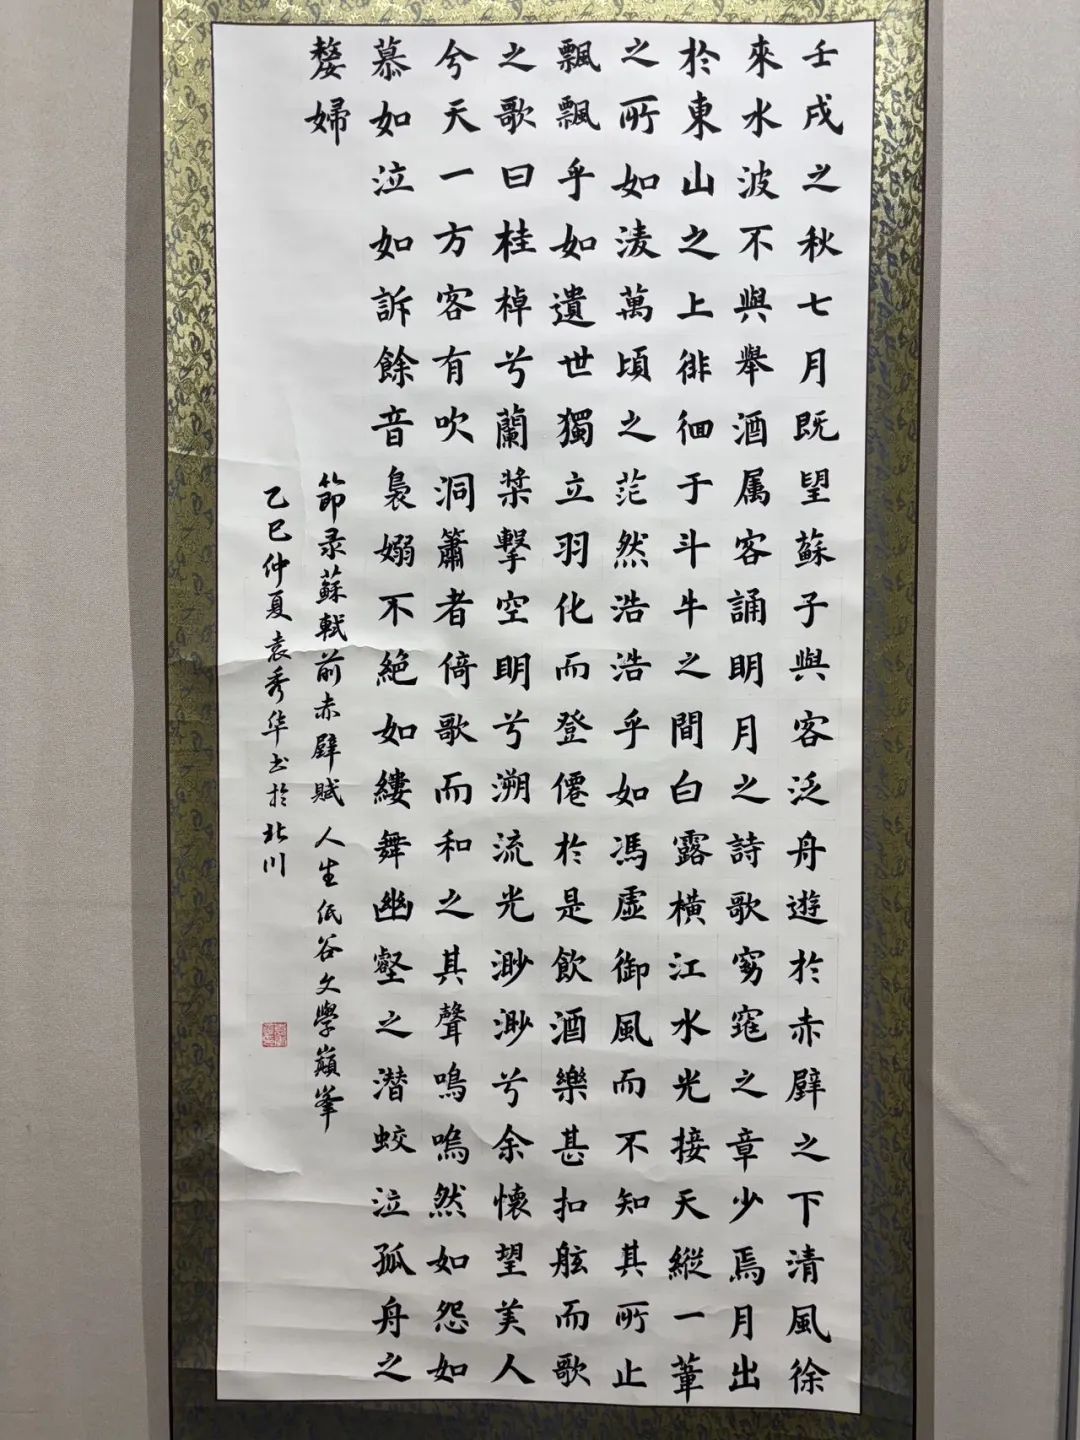 壬戌之秋七月既望蘇子與客泛舟遊於赤壁之下清風徐
來水波不興舉酒属客誦明月之詩歌窈窕之章少焉月出
於東山之上徘徊于斗牛之間白露橫江水光接天縱一葦
之所如淩萬頃之茫然浩浩乎如馮虛御風而不知其所止
飄飄乎如遺世獨立羽化而登僊於是飲酒樂甚扣舷而歌
之歌曰桂棹兮蘭槳擊空明兮溯流光渺渺兮余懷望美人
兮天一方客有吹洞簫者倚歌而和之其聲嗚嗚然如怨如
慕如泣如訴餘音裊嫋不絕如縷舞幽壑之潜蛟泣孤舟之
嫠婦
節录蘇軾前赤壁賦 人生低谷文學巔峯
乙巳仲夏袁秀华书於北川